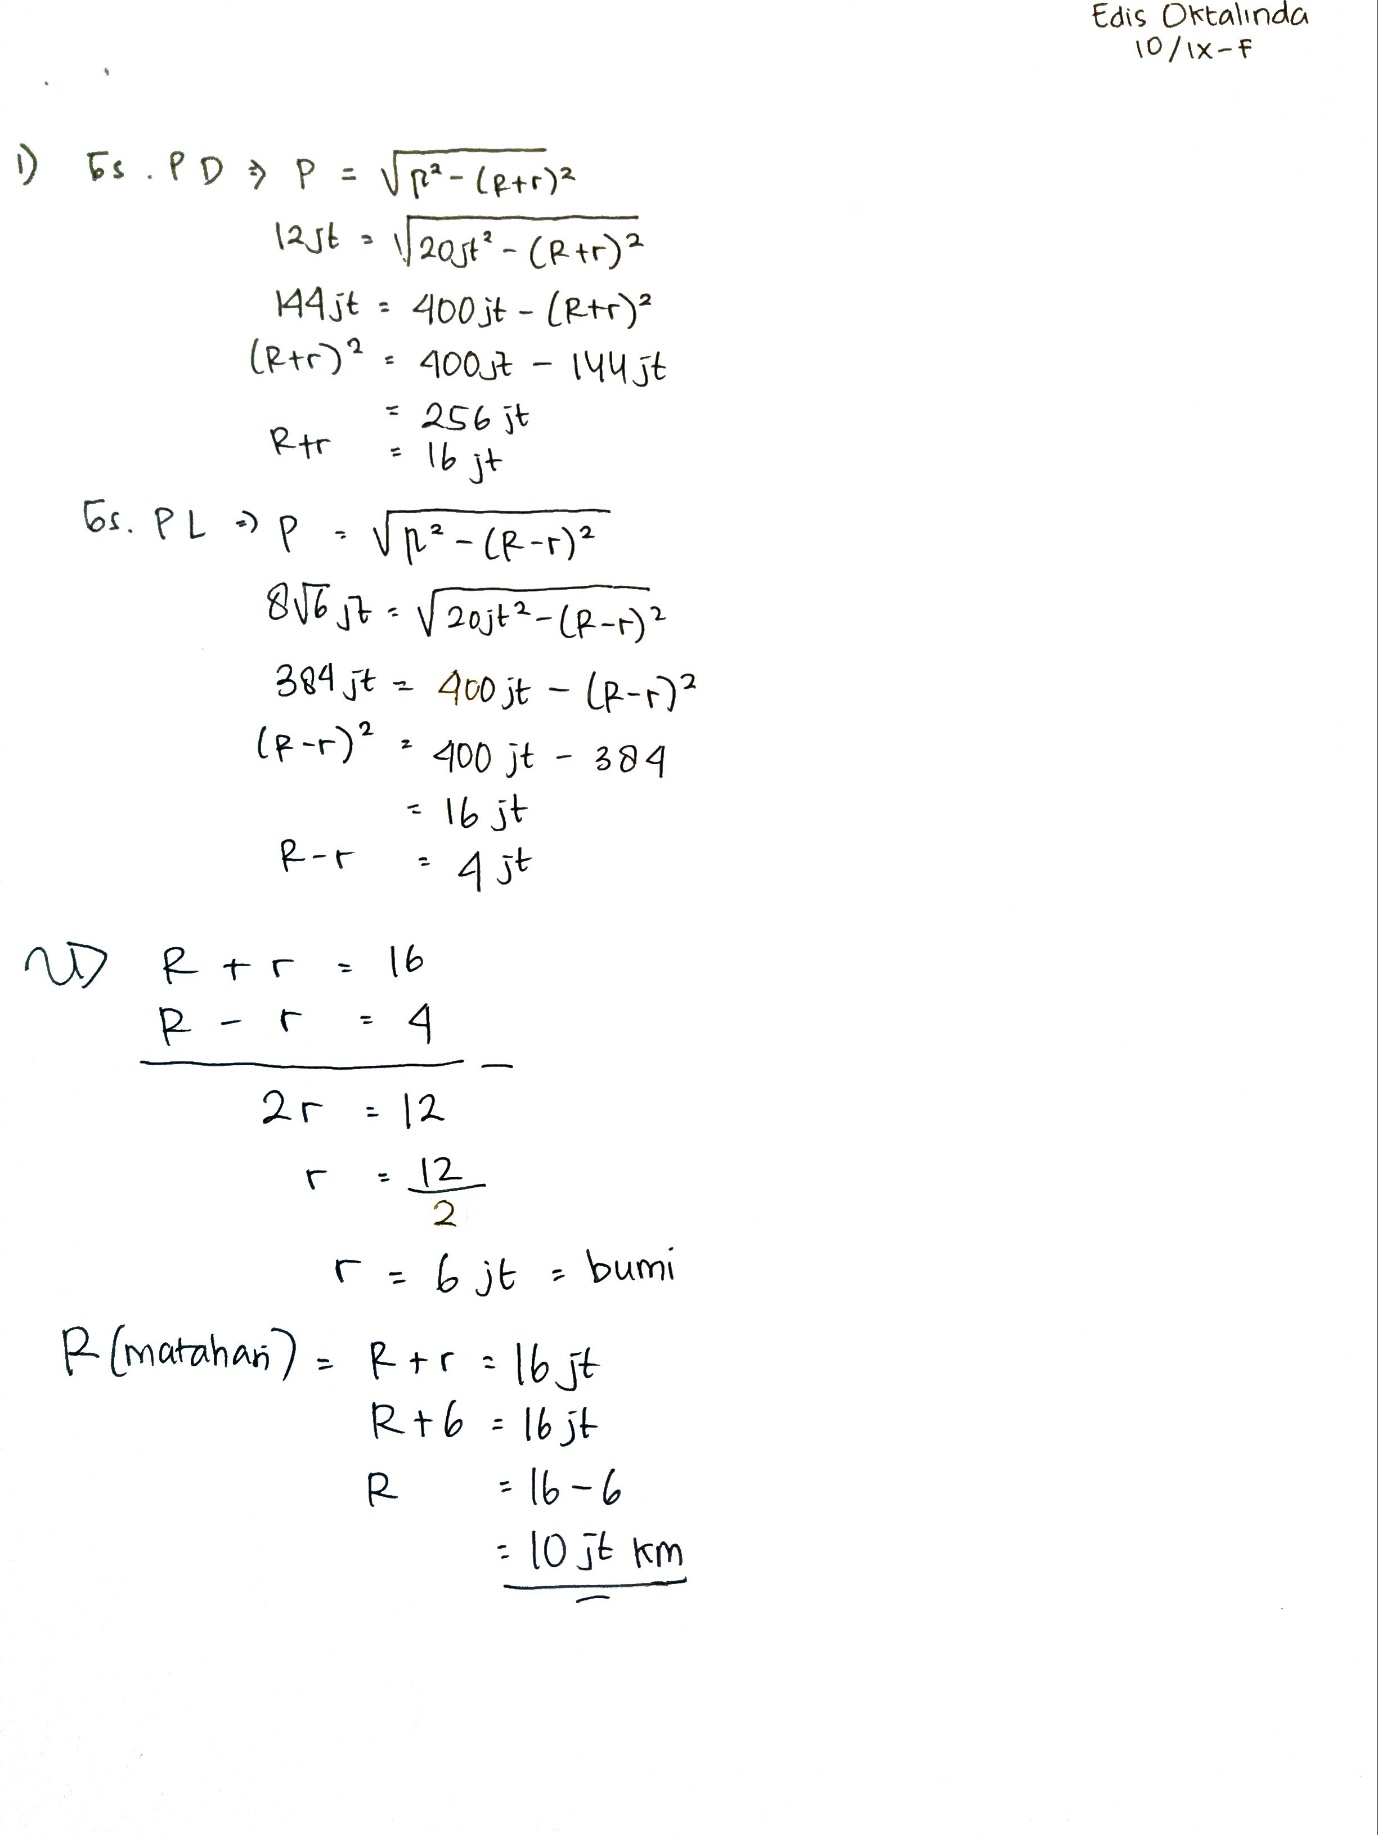 Edis Oktalinda
10/IX-F
1) Gs. PD ⇒ P = √p² - (R+r)²
12jt = √20jt² - (R+r)²
144jt = 400jt - (R+r)²
(R+r)² = 400jt - 144jt
= 256 jt
R+r = 16 jt
Gs. PL ⇒ P = √p² - (R-r)²
8√6 jt = √20jt² - (R-r)²
384 jt = 400 jt - (R-r)²
(R-r)² = 400 jt - 384
= 16 jt
R-r = 4 jt
R + r = 16
R - r = 4
2r = 12 -
r = 12
2
r = 6 jt = bumi
R (matahari) = R+r = 16 jt
R+6 = 16 jt
R = 16-6
= 10 jt km